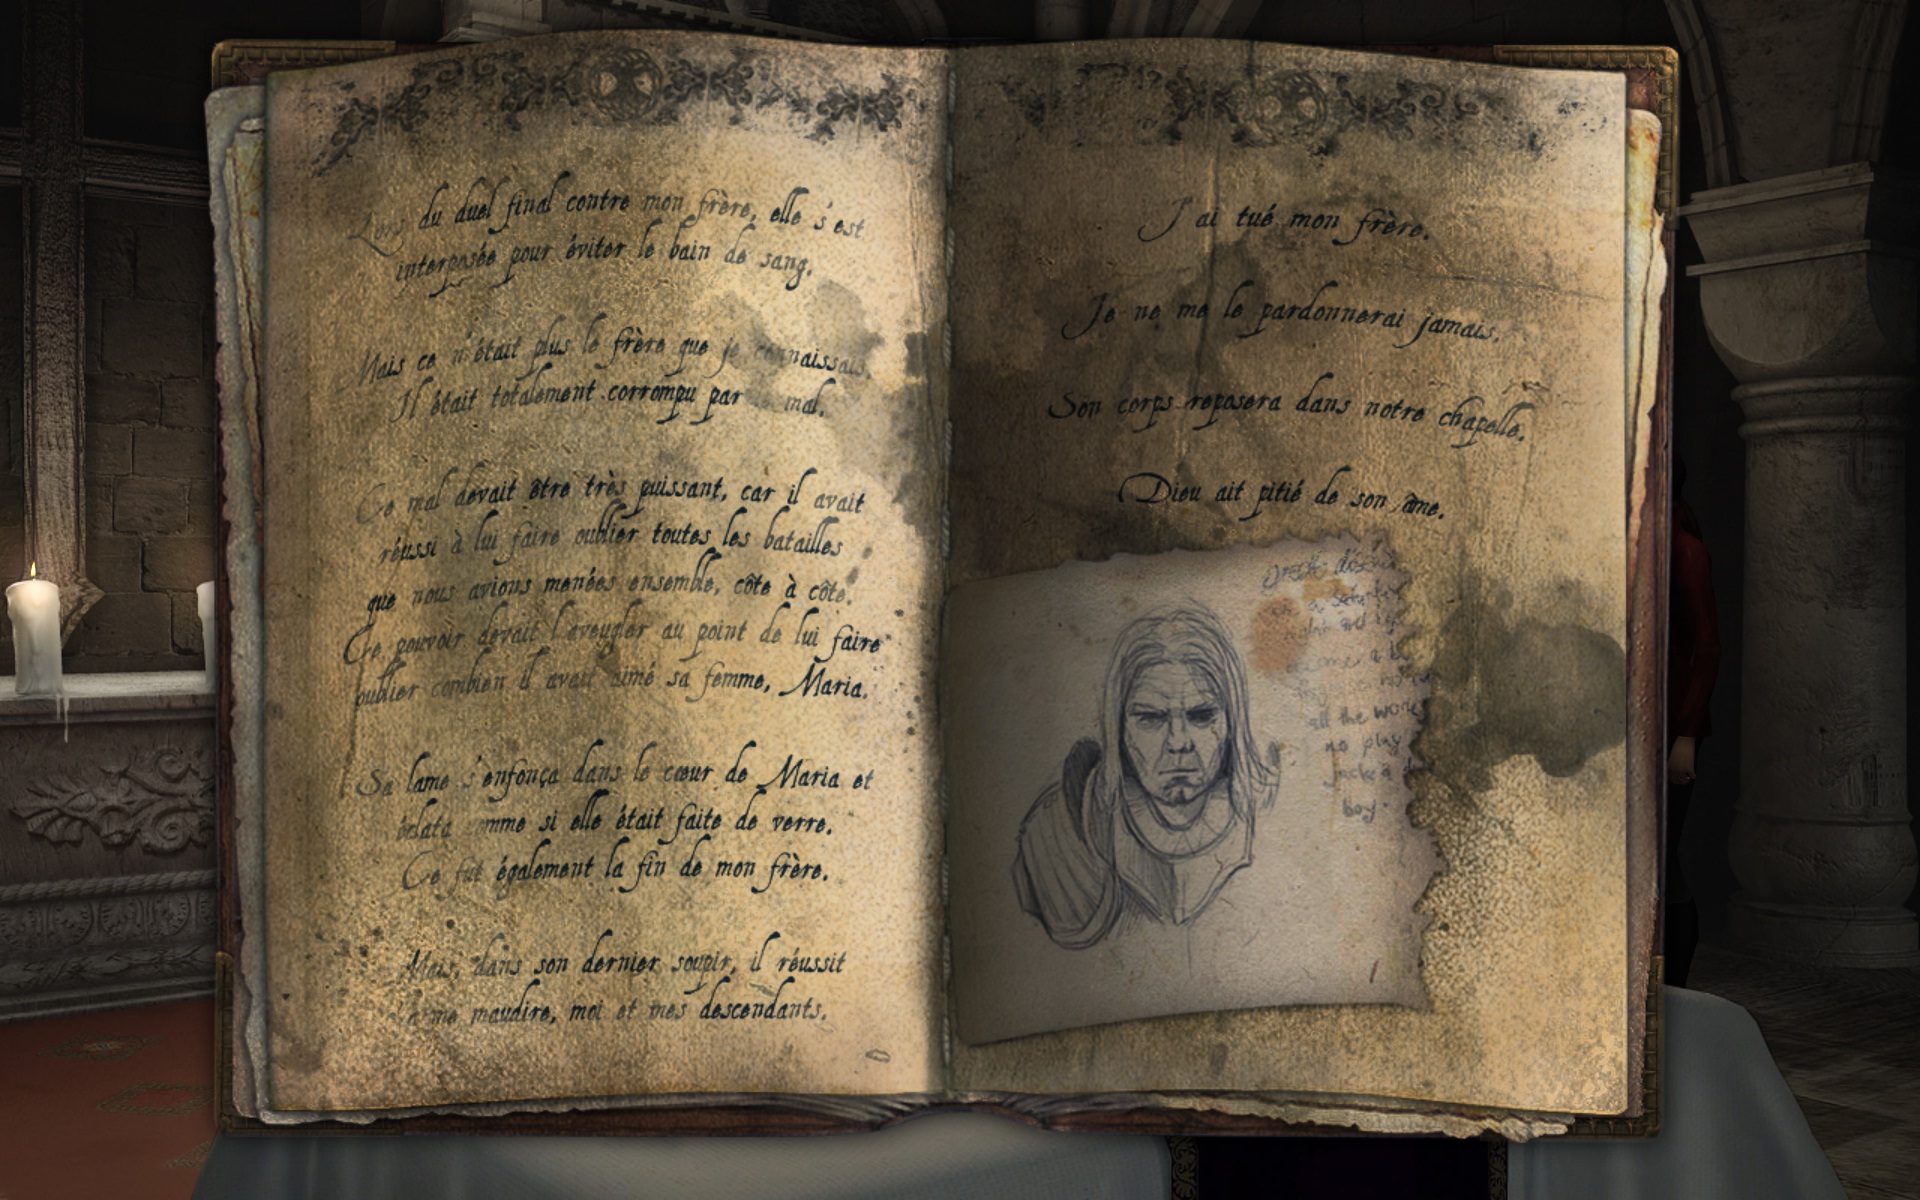 Lors du duel final contre mon frère, elle s'est
interposée pour éviter le bain de sang.
Mais ce n'était plus le frère que je connaissais.
Il était totalement corrompu par mal.
Ce mal devait être très puissant, car il avait
réussi à lui faire oublier toutes les batailles
que nous avions menées ensemble, côte à côte.
Ce pouvoir devait l'aveugler au point de lui faire
oublier combien il avait aimé sa femme, Maria.
Sa lame s'enfonça dans le cœur de Maria et
éclata comme si elle était faite de verre.
Ce fut également la fin de mon frère.
Mais, dans son dernier soupir, il réussit
à me maudire, moi et mes descendants.
J'ai tué mon frère.
Je ne me le pardonnerai jamais.
Son corps reposera dans notre chapelle.
Dieu ait pitié de son âme.
all the work
no play
boy